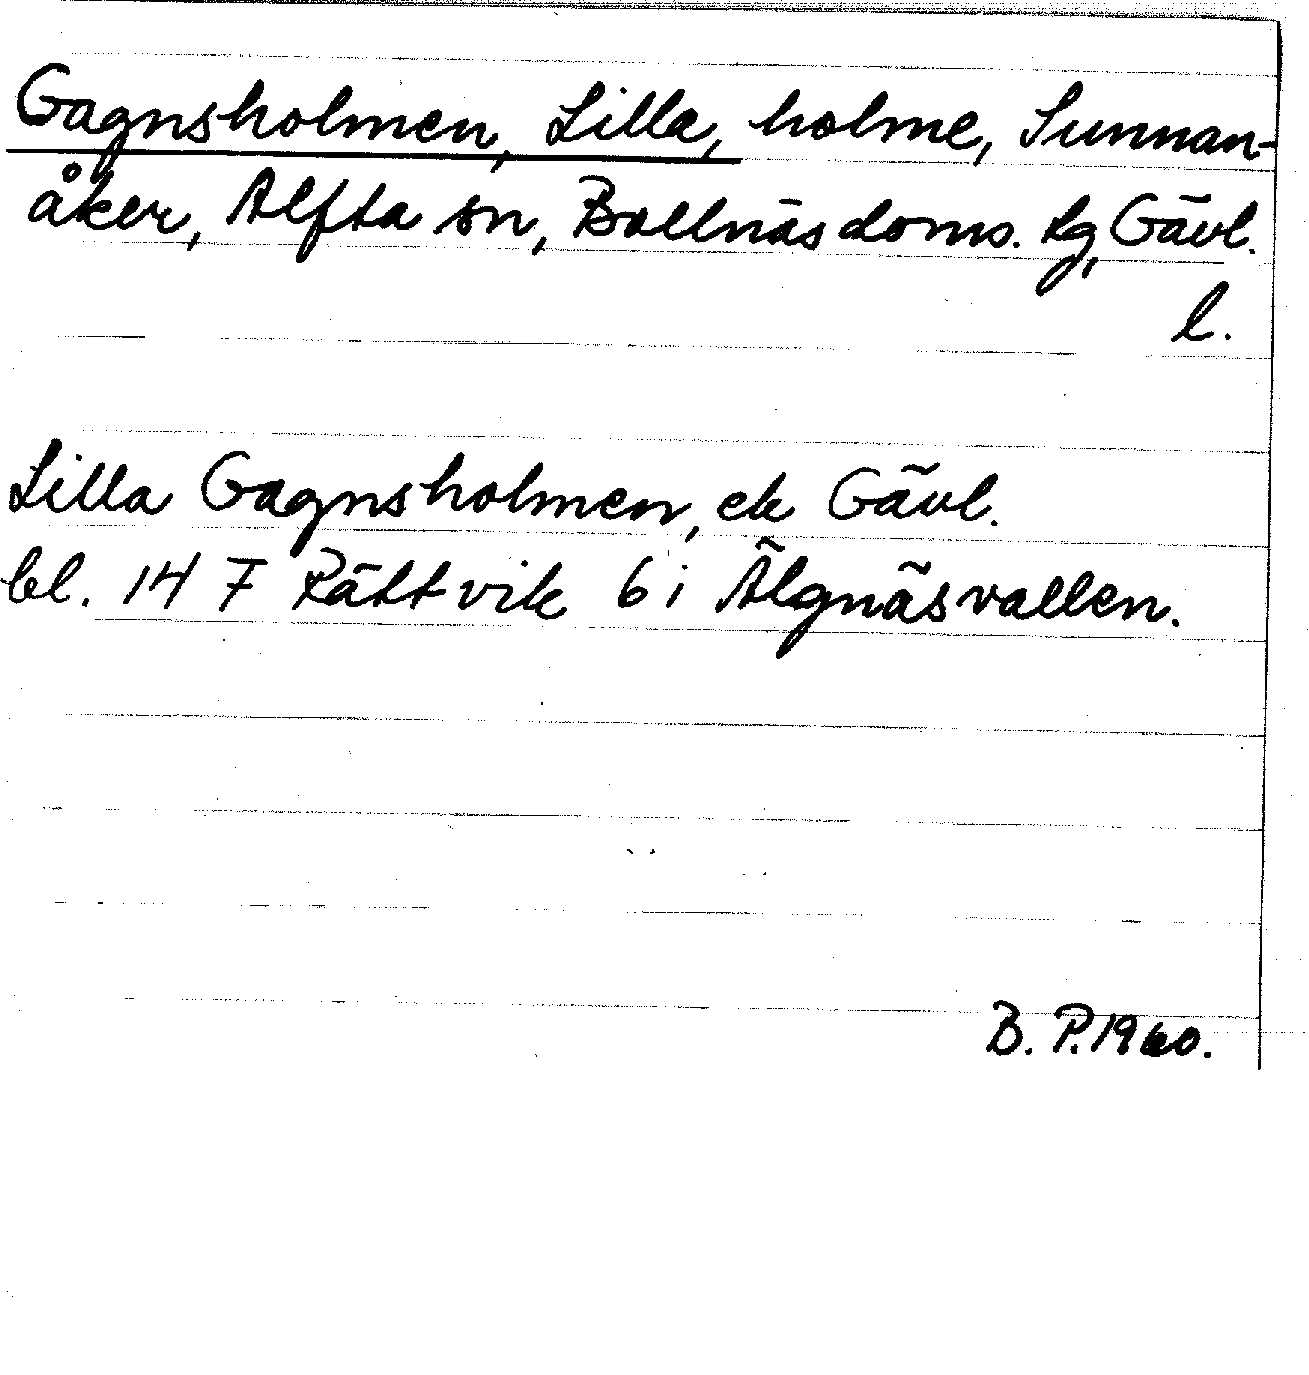 Gagnsholmen, Lilla, holme, Sunnan-
åker, Alfta sn, Bollnäs doms. tg, Gävl.
l.
Lilla Gagnsholmen, ek Gävl.
bl. 14 F Rättvik 6 i Älgnäsvallen.
B. P. 1960.